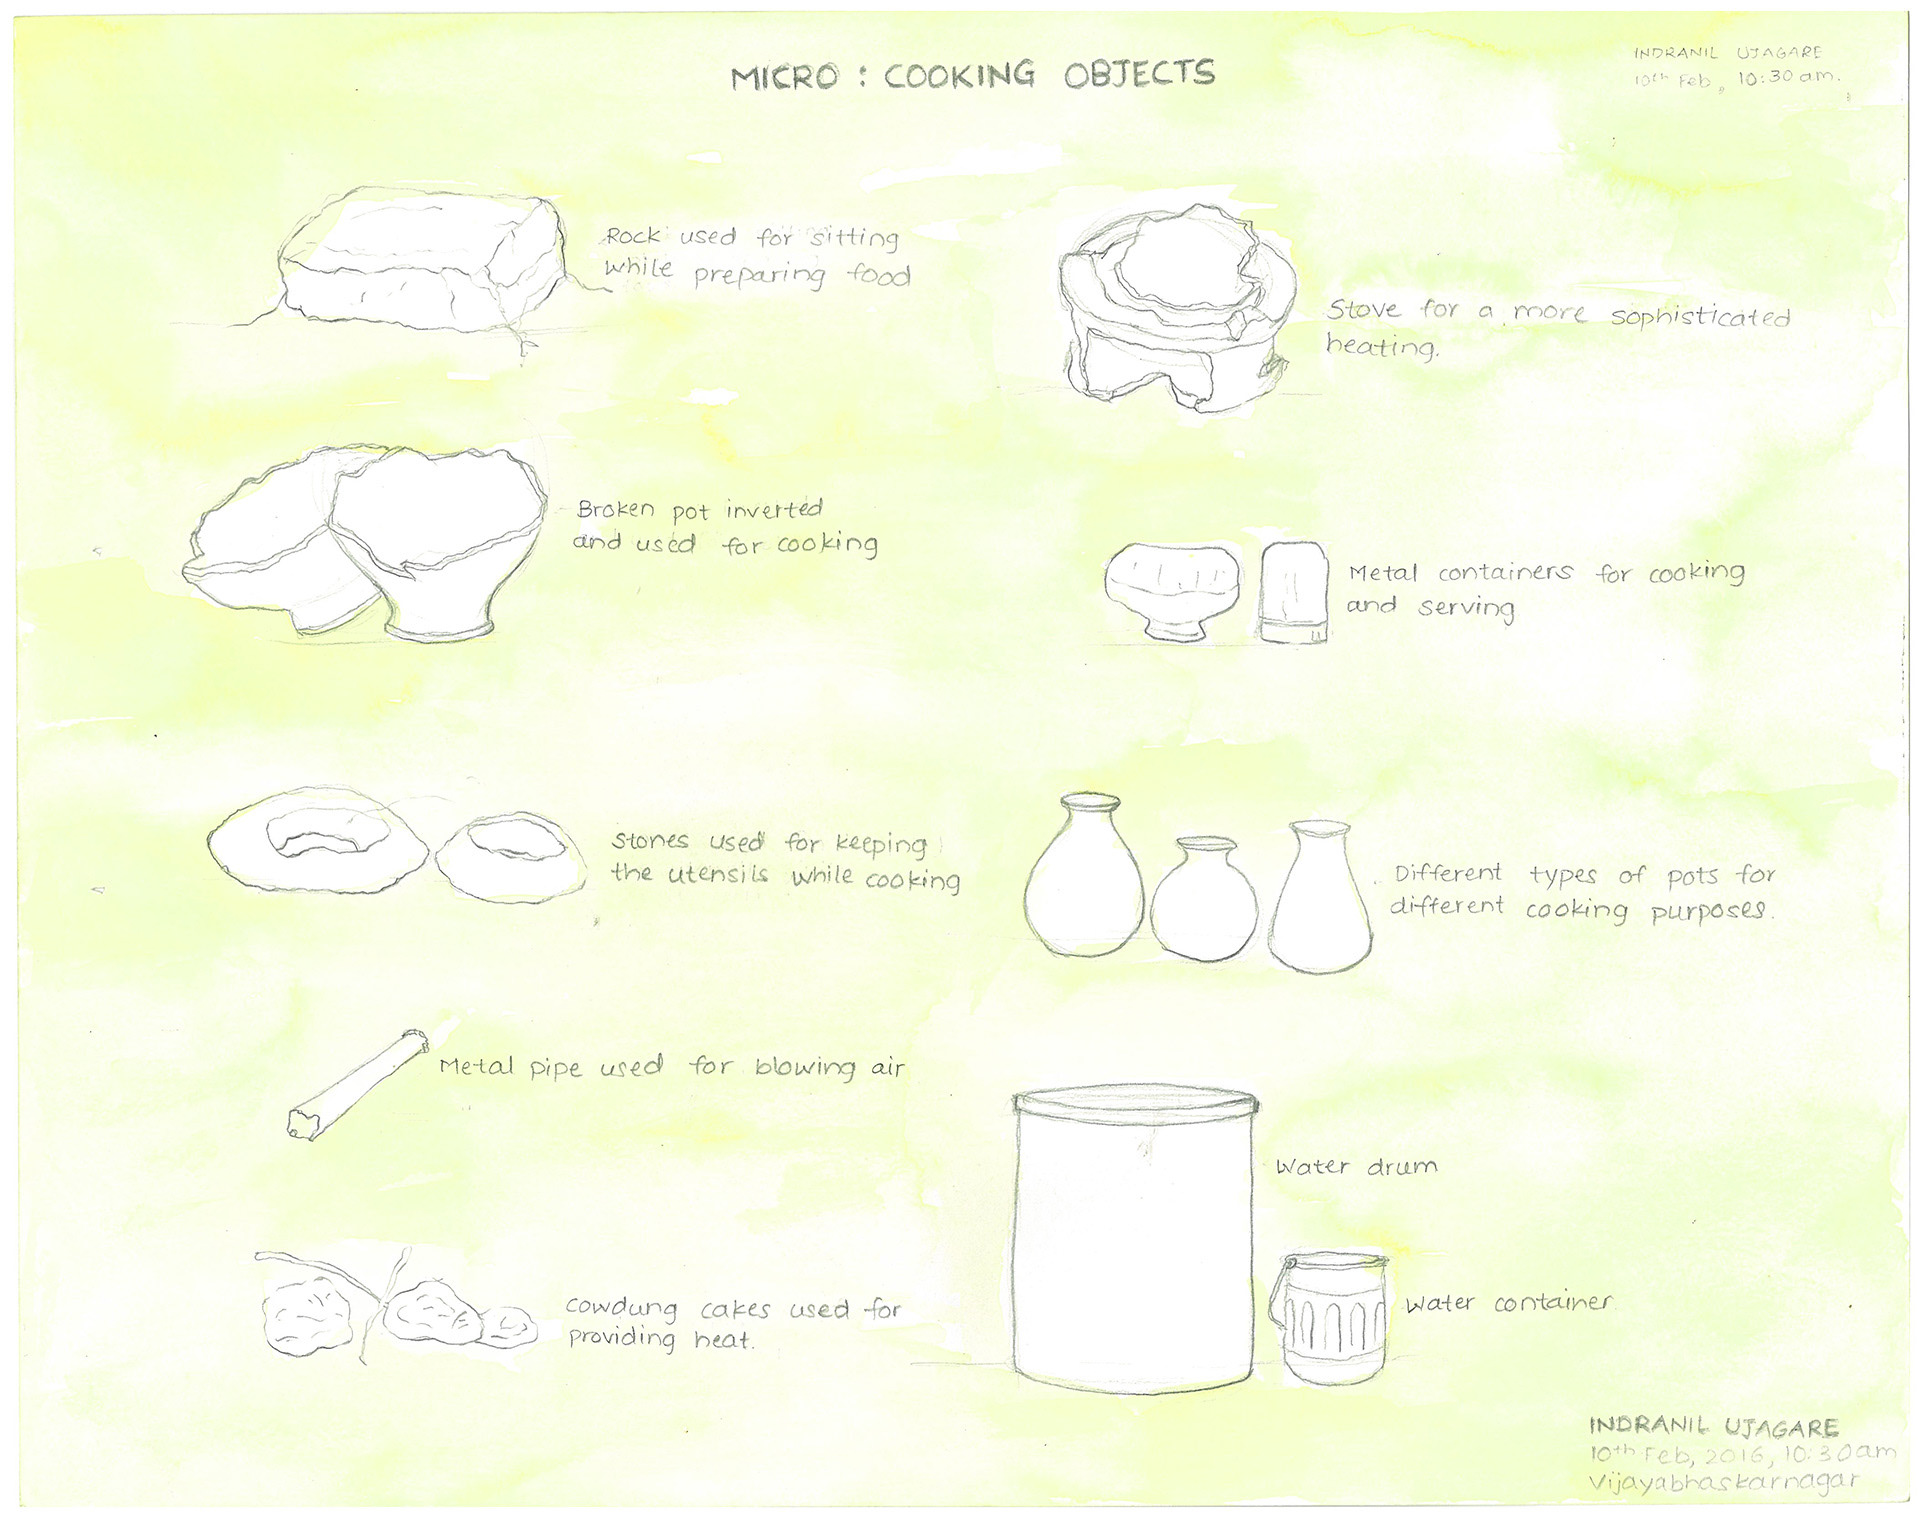 MICRO : COOKING OBJECTS
INDRANIL UJAGARE
10th Feb, 10:30 am.
Rock used for sitting
while preparing food
Stove for a more sophisticated
heating.
Broken pot inverted
and used for cooking
Metal containers for cooking
and serving
Stones used for keeping
the utensils while cooking
Different types of pots for
different cooking purposes.
Metal pipe used for blowing air
Water drum
Cowdung cakes used for
providing heat.
Water container
INDRANIL UJAGARE
10th Feb, 2016, 10:30am
Vijayabhaskarnagar